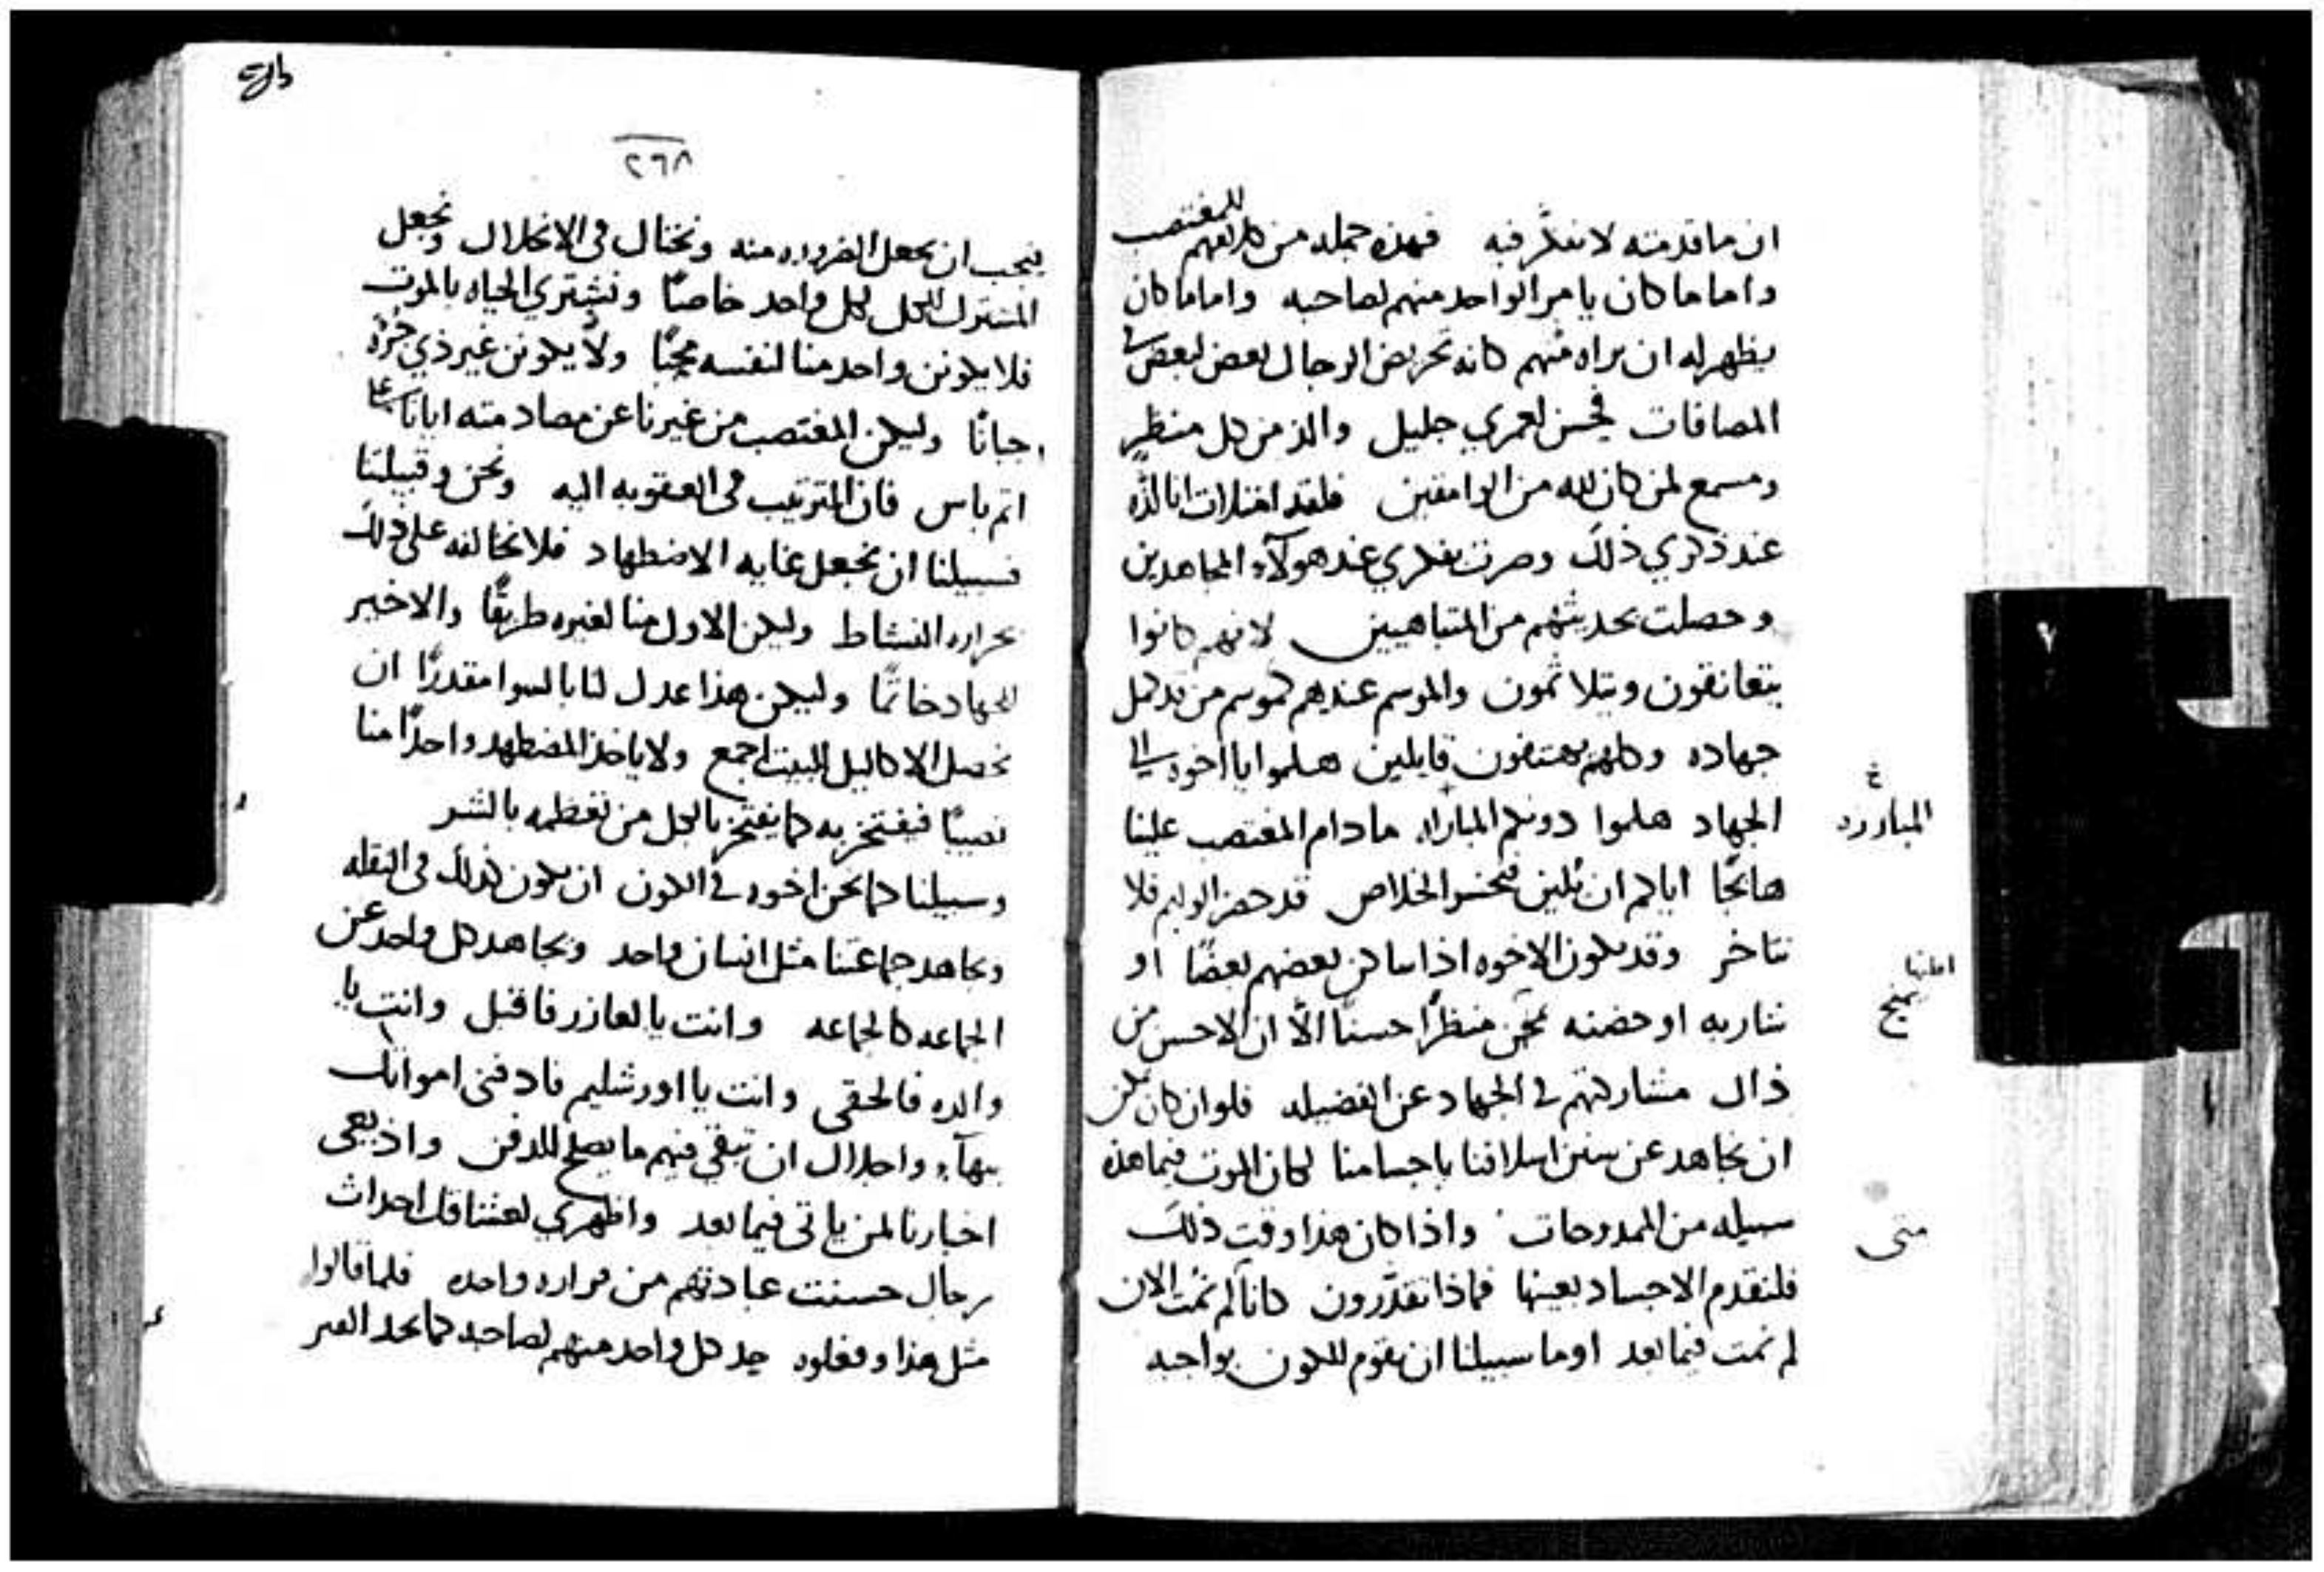 ان ما قدمته لا نفكر فيه فهذه جمله من كلامهم للمغتصب
واما ما كان يامر الواحد منهم لصاحبه واما ما كان
يظهر له ان يراه منهم كانه تحريض الرجال بعض لبعض في
المصافات فحسن لعمري جليل والذ من كل منظر
ومسمع لمن كان لله من الوامقين فلقد امتلات انا لذه
عند ذكري ذلك وصرت بفكري عند هولآء المجاهدين
وحصلت بحديثهم من المتباهيين لانهم كانوا
يتعانقون ويتلاثمون والموسم عندهم كموسم من قد كمل
جهاده وكلهم يهتفون قايلين هلموا يا اخوه الى
الجهاد هلموا دونكم المباراه ما دام المغتصب علينا
هائجًا اياكم ان يلين فنخسر الخلاص قد حضر الوليم فلا
نتاخر وقد يكون الاخوه اذا ساكن بعضهم بعضًا او
شاربه او حضنه منظرًا حسنًا الاّ ان الاحسن من
ذاك مشاركتهم في الجهاد عن الفضيله فلو ان كان يمكن
ان نجاهد عن سنن اسلافنا باجسامنا لكان الموت فيما هذه
سبيله من الممدوحات واذا كان هذا وقت ذلك
فلنقدم الاجساد بعينها فماذا تقدّرون كانا لم نمت الان
لم نمت فيما بعد اوما سبيلنا ان نقوم للكون بواجبه
المبارزه
متى
٢٦٨
فيجب ان نجعل الضروره منه ونحتال في الانحلال ونجعل
المشترك للكل لكل واحد خاصًا ونشتري الحياه بالموت
فلا يكونن واحد منا لنفسه محبًا ولا يكونن غير ذي
جبانًا وليكن المغتصب من غيرنا عن مصادمته
اتم باس فان الترتيب في العقوبه اليه ونحن وقبيلتنا
فسبيلنا ان نجعل غايه الاضطهاد فلا نخالفه على ذلك
بحراره النشاط وليكن الاول منا لغيره طريقًا والاخير
للجهاد خاتمًا وليكن هذا عدل لنا بالسوا مقدرًا ان
نحصل الاكاليل البيت اجمع ولا ياخذ المضطهد واحدًا منا
نصيبًا فيفتخر به كما يفتخر بالكل من تعظمه بالشر
وسبيلنا كما نحن اخوه في الكون ان نكون كذلك في النقله
ونجاهد جماعتنا مثل انسان واحد ونجاهد كل واحد عن
الجماعه كالجماعه وانت يا لعازر فاقبل وانت يا
والده فالحقي وانت يا اورشليم فادفني امواتك
ببهآء واجلال ان تبقى منهم ما يصلح للدفن واذيعي
اخبارنا لمن ياتي فيما بعد واظهري لعشاقك احداث
رجال حسنت عبادتهم من قراره واحده فلما قالوا
مثل هذا وفعلوه حد كل واحد منهم لصاحبه كما تحد